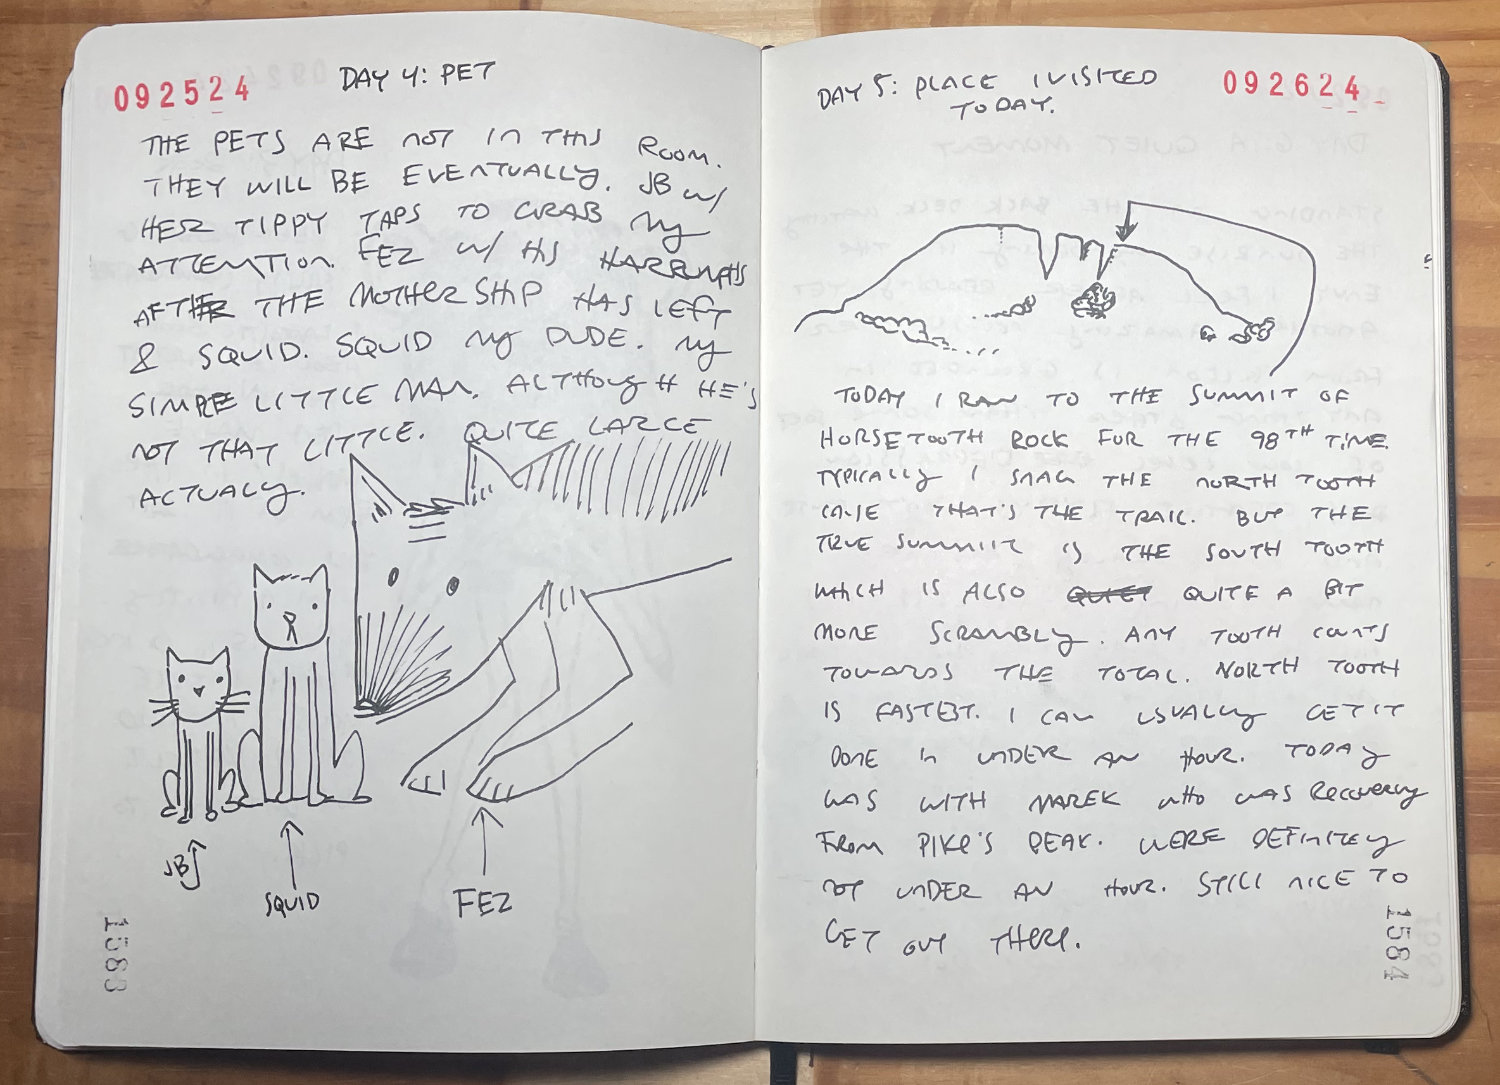 092524
DAY 4: PET
THE PETS ARE NOT IN THIS ROOM.
THEY WILL BE EVENTUALLY. JB W/
HER TIPPY TAPS TO GRAB MY
ATTENTION. FEZ W/ HIS HARRUMPHS
AFTER THE MOTHERSHIP HAS LEFT
& SQUID. SQUID MY DUDE. MY
SIMPLE LITTLE MAN. ALTHOUGH HE'S
NOT THAT LITTLE. QUITE LARGE
ACTUALY.
JB
SQUID
FEZ
1583
DAY 5: PLACE I VISITED
TODAY.
092624
TODAY I RAN TO THE SUMMIT OF
HORSETOOTH ROCK FOR THE 98TH TIME.
TYPICALLY I SNAG THE NORTH TOOTH
THAT'S THE TRAIL. BUT THE
TRUE SUMMIT IS THE SOUTH TOOTH
WHICH IS ALSO QUIET QUITE A BIT
MORE SCRAMBLY. ANY TOOTH COUNTS
TOWARDS THE TOTAL. NORTH TOOTH
IS FASTEST. I CAN USUALLY GET IT
DONE IN UNDER AN HOUR. TODAY
WAS WITH MAREK WHO WAS RECOVERY
FROM PIKE'S PEAK. WERE DEFINITELY
NOT UNDER AN HOUR. STILL NICE TO
GET OUT THERE.
1584